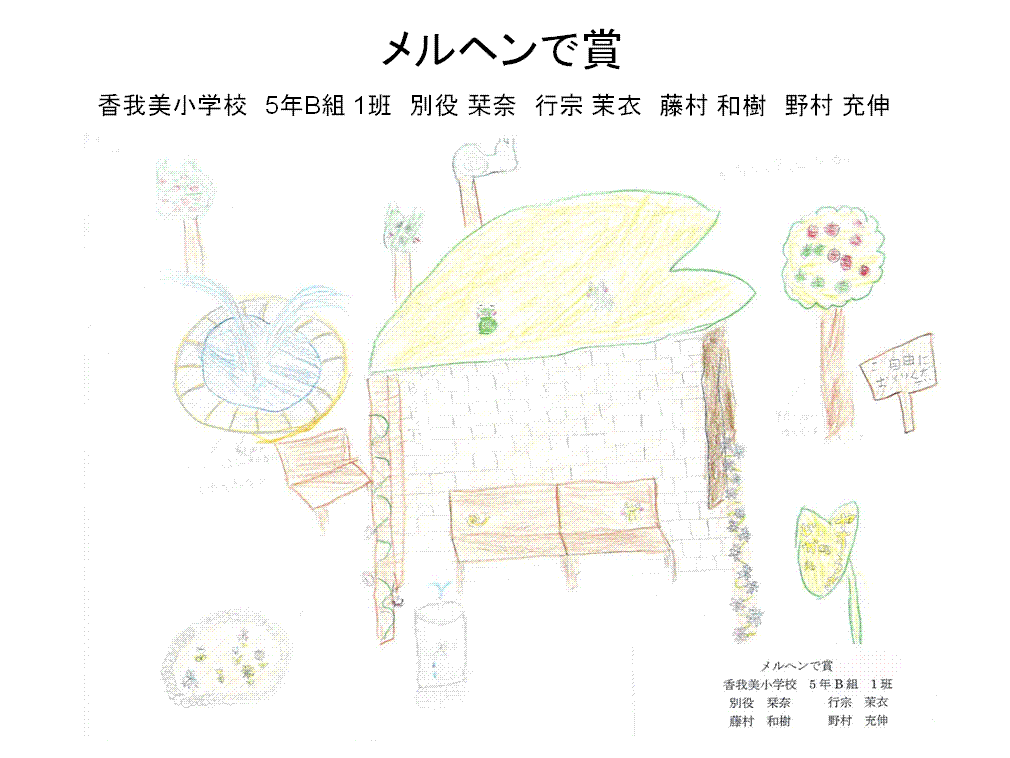 メルヘンで賞
香我美小学校 5年B組 1班 別役 栞奈 行宗 茉衣 藤村 和樹 野村 充伸
ご自由に
メルヘンで賞
香我美小学校 5年B組 1班
別役 栞奈 行宗 茉衣
藤村 和樹 野村 充伸